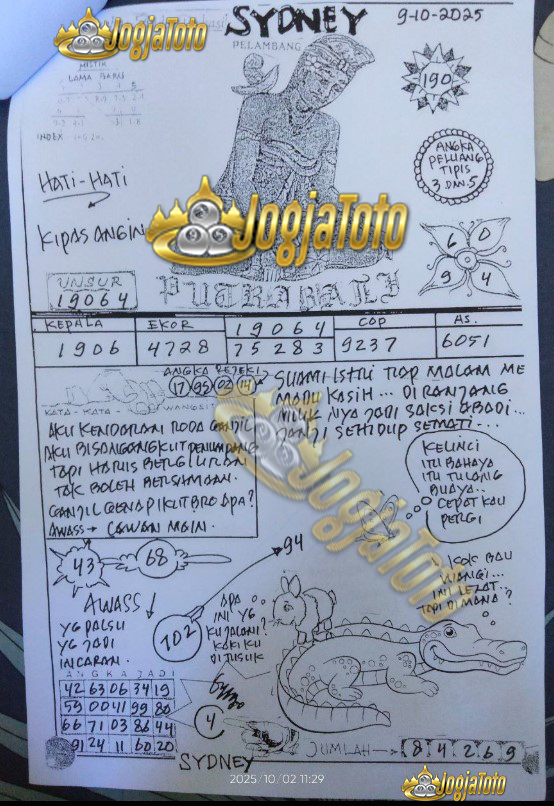 JogjaToto
SYDNEY
9-10-2025
PELAMBANG
MISTIK
LAMA BARU
INDEX
190
HATI-HATI
ANGKA
PELUANG
TIPIS
3 DAN 5
KIPAS ANGIN
JogjaToto
6 0
9 4
UNSUR
19064
PUTRA BALI
KEPALA
EKOR
19064
COP
AS.
1906
4728
75283
9237
6051
ANGKA REJEKI
17 95 02 14
SUAMI ISTRI TIAP MALAM ME
MADU KASIH... DI RANJANG
MILIK NYA JADI SAKSI ABADI...
JANJI SEHIDUP SEMATI...
KATA - KATA - WANGSIT
AKU KENDARAAN RODA GANJIL
AKU BISA NGANGKUT PENUMPANG
TAPI HARUS BERGILIRAN
TAK BOLEH BERSAMAAN.
GANJIL GENAP IKUT BRO APA?
AWASS → LAWAN MAIN.
KELINCI
ITU BAHAYA
ITU TULANG
BUAYA..
CEPAT KAU
PERGI
JogjaToto
43
68
94
KOK BAU
WANGI...
INI LEZAT..
TAPI DIMANA?
AWASS
YG PALSU
YG JADI
INCARAN.
702
APA
INI YG
KU JALANI?
KAKI KU
DI TUSUK
ANGKA JADI
42 63 06 34 19
59 00 41 99 80
66 71 03 86 44
91 24 11 60 20
4
SYDNEY
JUMLAH → 84269
2025/10/02 11:29
JogjaToto